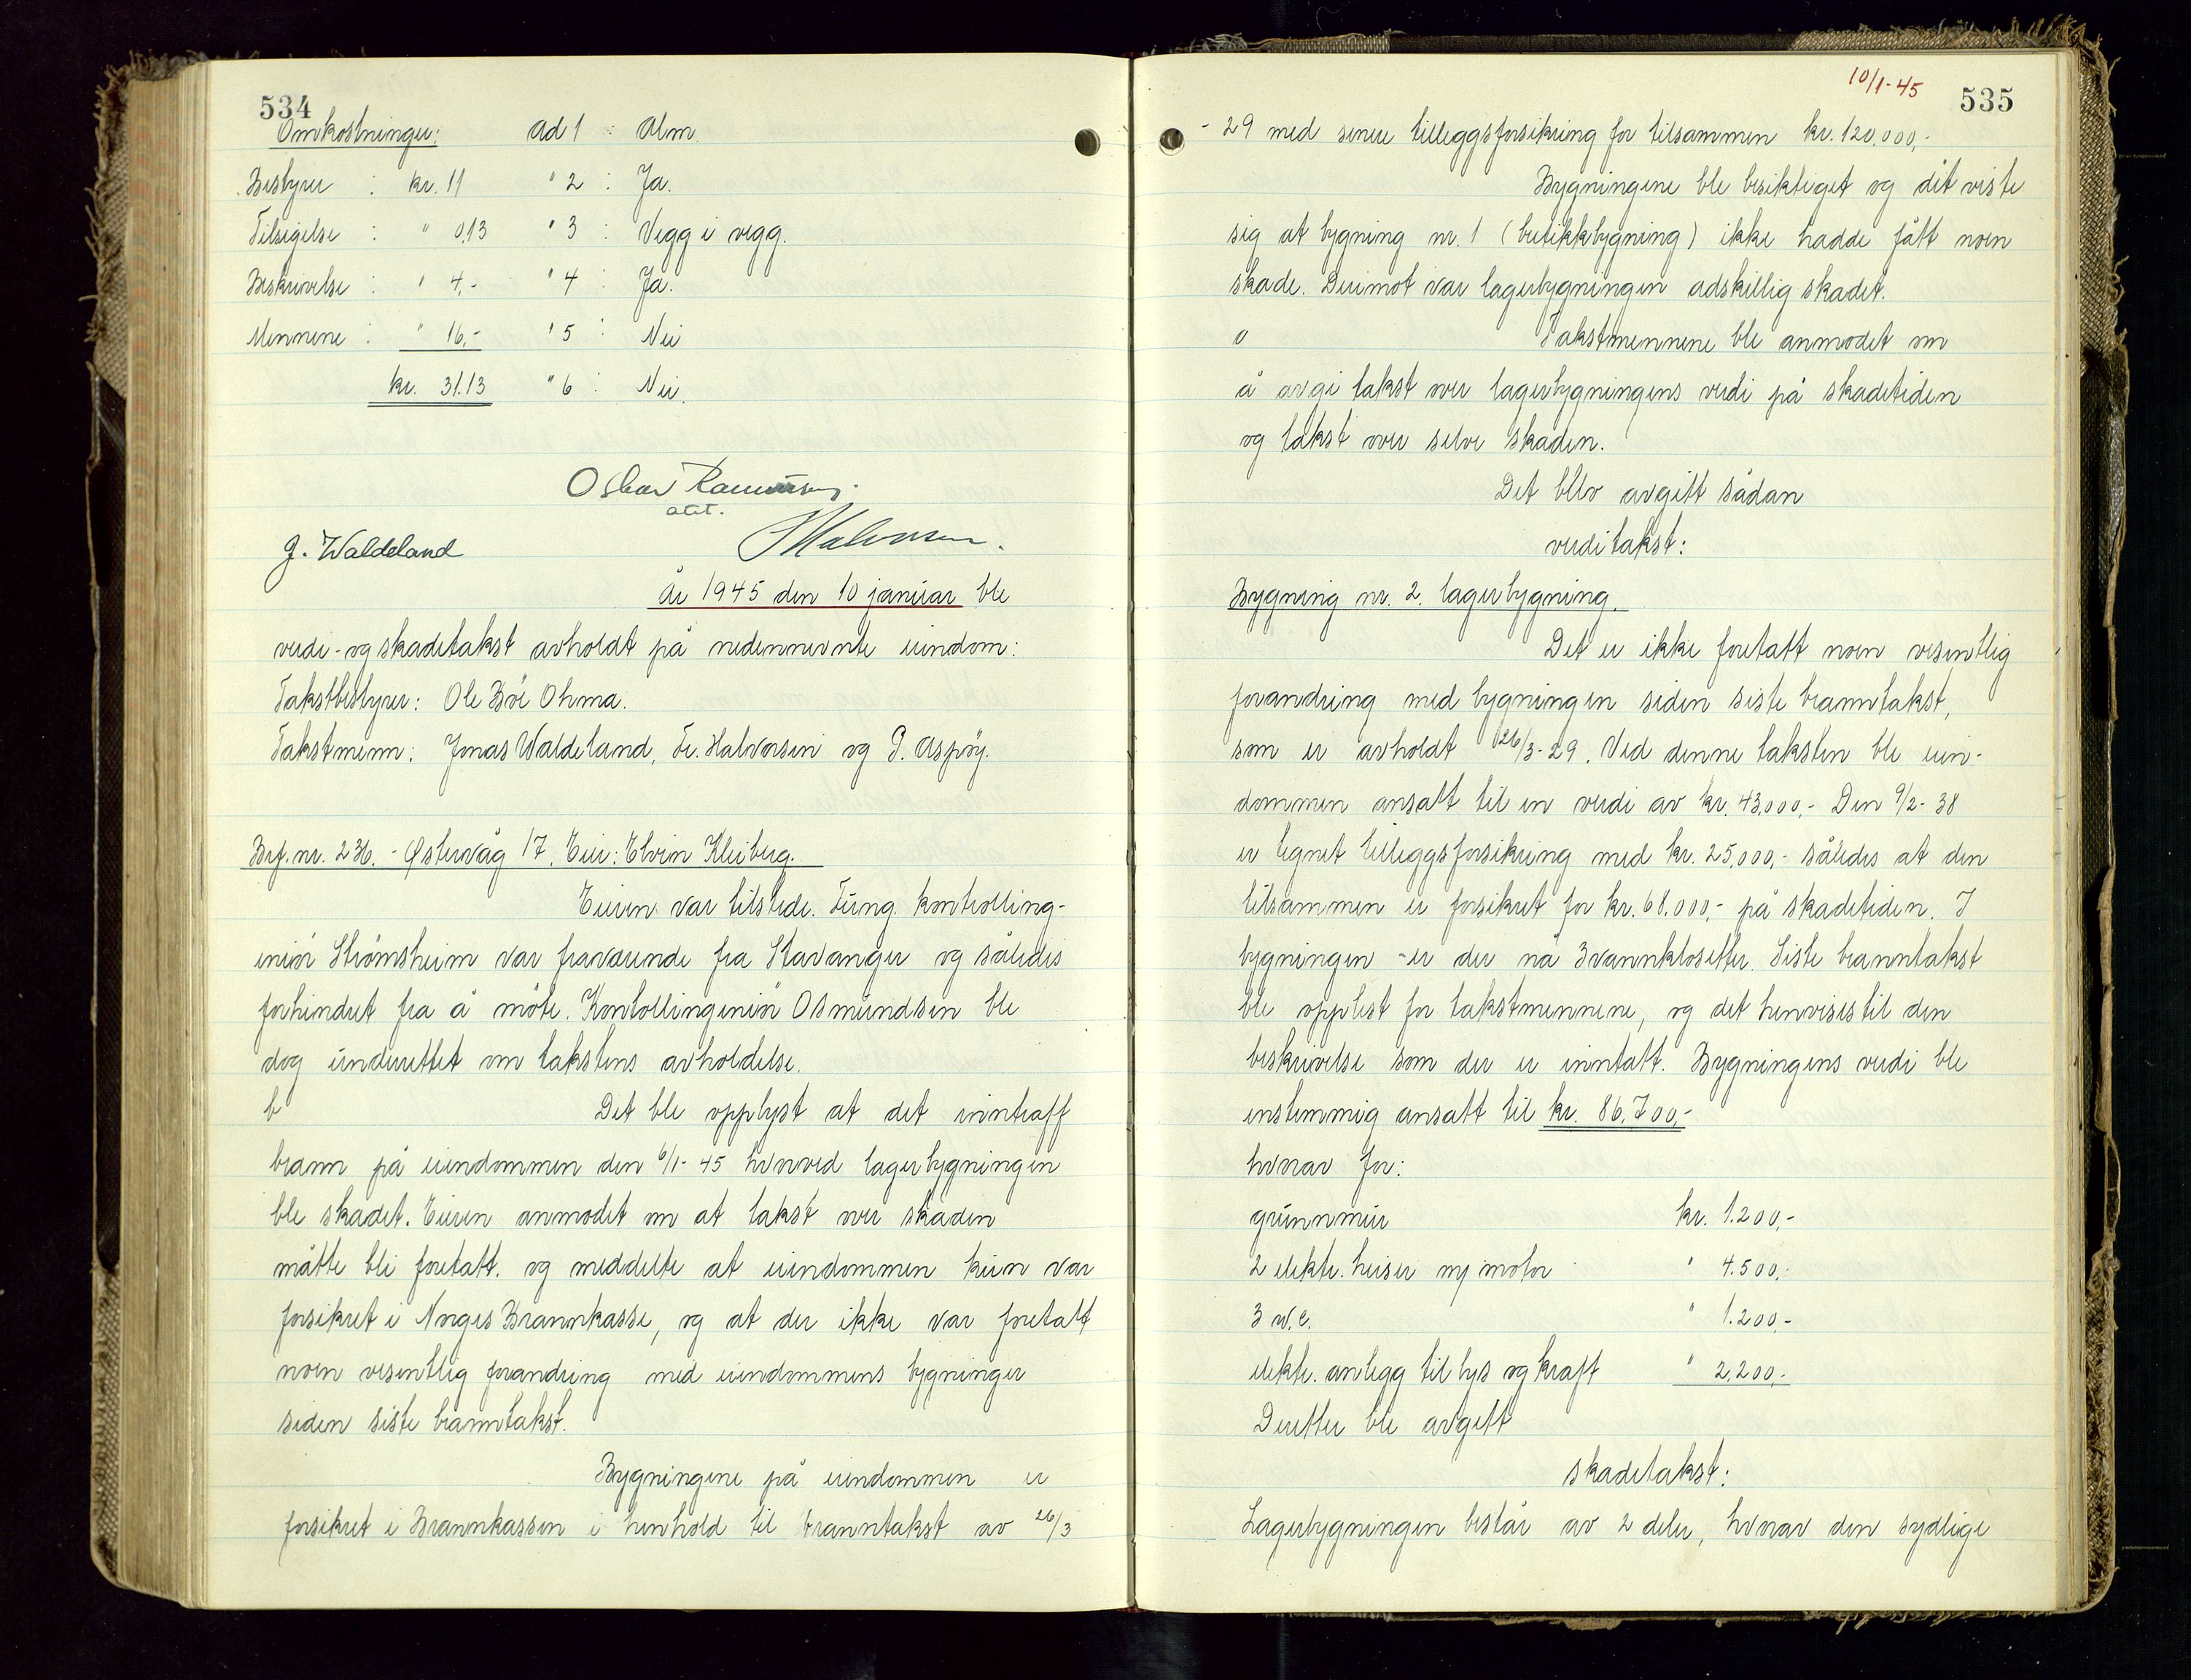 534
Omkostninger: ad 1 : Alm.
Bestyrer : kr. 11 " 2 : Ja.
Tilsigelse : " 0,13 " 3 : Vegg i vegg.
Beskrivelse : " 4,- " 4 : Ja.
Mennene : " 16,- " 5 : Nei
kr. 31.13 " 6 : Nei.
Oskar
J. Waldeland Halvorsen.
År 1945 den 10 januar ble
verdi- og skadetakst avholdt på nedennevnte eiendom:
Takstbestyrer: Ole Böe Ohma.
Takstmenn: Jonas Waldeland, Fr. Halvorsen og P. Aspöy.
Brf. nr. 236. - Østervåg 17. Eier: Elvin Kleiberg.
Eieren var tilstede. Fung. kontrolling-
eniör Strömsheim var fraværende fra Stavanger og således
forhindret fra å möte. Kontollingeniör Osmundsen ble
dog underrettet om takstens avholdelse.
b Det ble opplyst at det inntraff
brann på eiendommen den 6/1-45 hvorved lagerbygningen
ble skadet. Eieren anmodet om at takst over skaden
måtte bli foretatt. og meddelte at eiendommen kun var
forsikret i Norges Brannkasse, og at der ikke var foretatt
noen vesentlig forandring med eiendommens bygninger
siden siste branntakst.
Bygningene på eiendommen er
forsikret i Brannkassen i henhold til branntakst av 26/3
10/1-45 535
- 29 med senere tilleggsforsikring for tilsammen kr. 120.000,-
Bygningene ble besiktiget og dit viste
sig at bygning nr. 1 (butikkbygning) ikke hadde fått noen
skade. Derimot var lagerbygningen adskillig skadet.
o Takstmennene ble anmodet om
å avgi takst over lagerbygningens verdi på skadetiden
og takst over selve skaden.
Det blev avgitt sådan
verditakst:
Bygning nr. 2. lagerbygning.
Det er ikke foretatt noen vesentlig
forandring med bygningen siden siste branntakst,
som er avholdt 26/3-29. Ved denne taksten ble eien-
dommen ansatt til en verdi av kr. 43,000,- Den 9/2-38
er tegnet tilleggsforsikring med kr. 25,000,- således at den
tilsammen er forsikret for kr. 68.000,- på skadetiden. I
bygningen - er der nå 3 vannklosetter. Siste branntakst
ble opplest for takstmennene, og det henvises til den
beskrivelse som der er inntatt. Bygningens verdi ble
enstemmig ansatt til kr. 86.700,-
hvorav for:
grunnmur kr. 1.200,-
2 elektr. heiser m/ motor " 4.500,-
3 w.c. " 1.200,-
elektr. anlegg til lys og kraft " 2.200,-
Deretter ble avgitt
skadetakst:
Lagerbygningen består av 2 deler, hvorav den sydlige